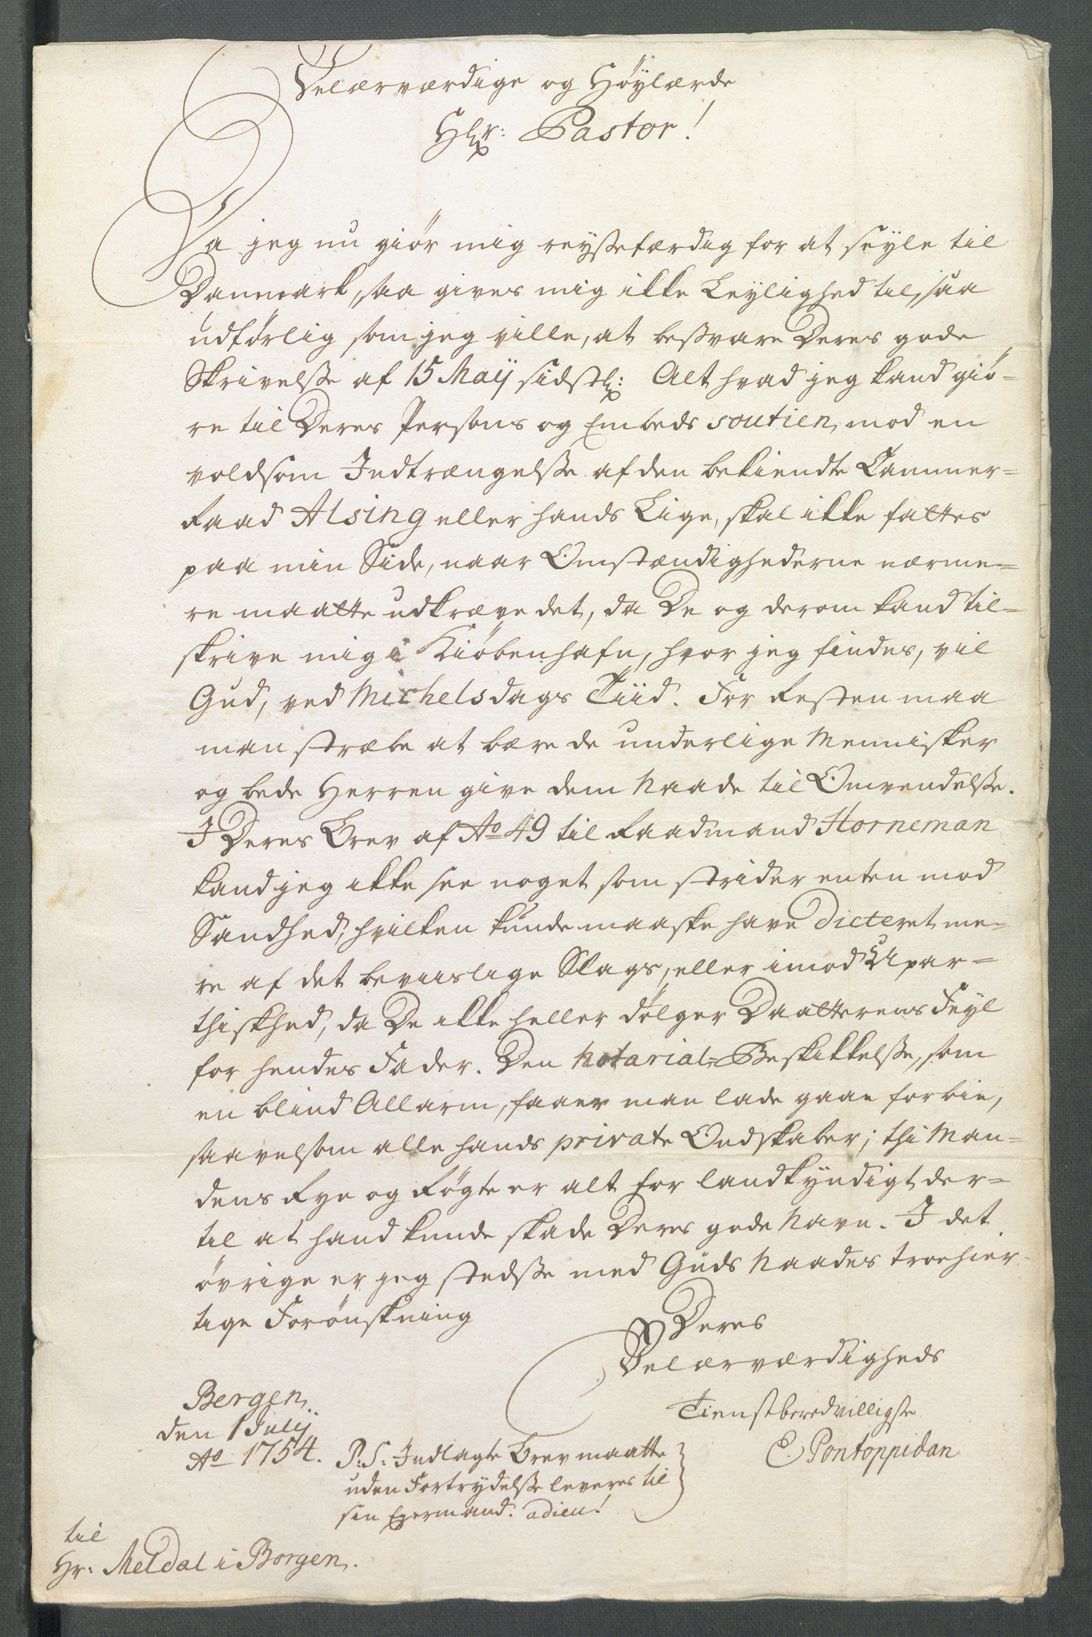 Velærværdige og Høylærde
Hr: Pastor!
Da jeg nu giør mig reyssefærdig for at seyle til
Danmark, saa gives mig ikke Leylighed til, saa
udførlig som jeg ville, at besvare Deres gode
Skrivelsse af 15 Maij sidstl: Alt hvad jeg kand giø-
re til Deres Persons og Embeds soutien, mod en
voldsom Indtrængelsse af den bekiendte Cammer-
Raad Alsing eller hands Lige, skal ikke fattes
paa min Side, naar Omstændighederne nærme-
re maatte udkræve det, da De og derom kand til-
skrive mig i Kiøbenhafn, hvor jeg findes, vil
Gud, ved Michelsdags Tiid. For Resten maa
man stræbe at bære de underlige Mennisker
og bede Herren give dem Naade til Omvendelsse.
I Deres Brev af Ao 49 til Raadmand Horneman
kand jeg ikke see noget som strider enten mod
Sandhed, hvilken kunde maaske have dicteret me-
re af det beviislige Slags, eller imod Upar-
thiskhed, da De ikke heller dølger Daatterens Feyl
for hendes Fader. Den Notarial-Beskikkelsse, som
en blind Allarm, faaer man lade gaae forbie,
saavelsom alle hands private Ondskaber; thi Man-
dens Rye og Røgte er alt for landkyndigt der-
til at hand kunde skade Deres gode Navn. I det
øvrige er jeg stedsse med Guds Naades troehier-
tige Forønskning
Deres
Velærværdigheds
Tienstberedvilligste
E. Pontoppidan
Bergen
den 1 Julij
Ao 1754.
P.S. Indlagte Brev maatte
uden Fortrydelsse leveres til
sin Eyermand. adieu!
til
Hr: Meldal i Borgen.